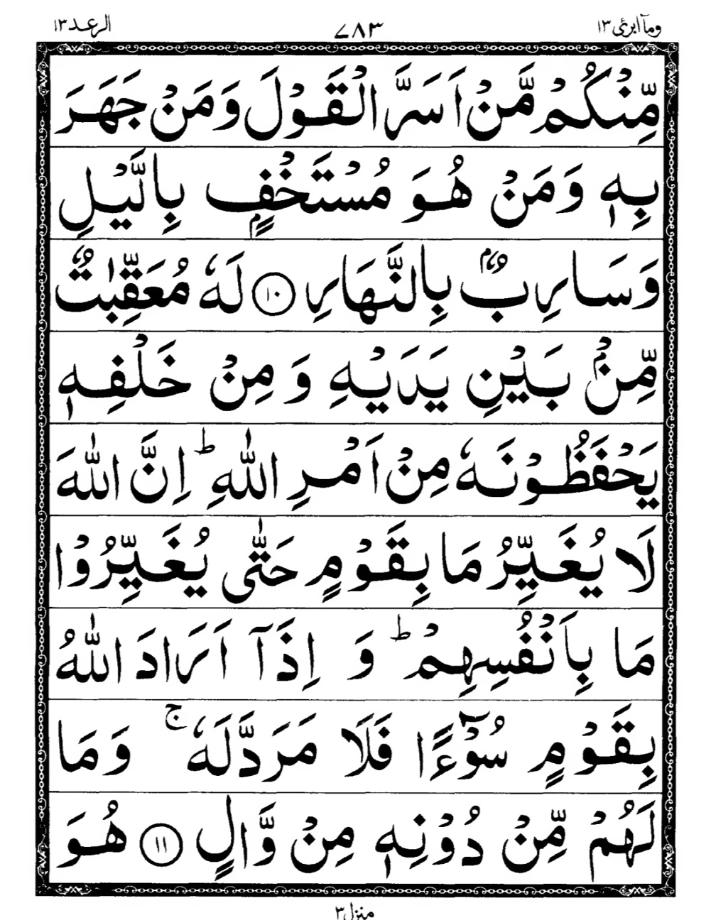 وما ابرئ ١٣ ٧٨٣ الرعد ١٣
مِّنْكُمْ مَّنْ اَسَرَّ الْقَوْلَ وَمَنْ جَهَرَ
بِهٖ وَمَنْ هُوَ مُسْتَخْفٍۭ بِالَّيْلِ
وَسَارِبٌۢ بِالنَّهَارِ ⑩ لَهٗ مُعَقِّبٰتٌ
مِّنْۢ بَيْنِ يَدَيْهِ وَمِنْ خَلْفِهٖ
يَحْفَظُوْنَهٗ مِنْ اَمْرِ اللّٰهِ ؕ اِنَّ اللّٰهَ
لَا يُغَيِّرُ مَا بِقَوْمٍ حَتّٰى يُغَيِّرُوْا
مَا بِاَنْفُسِهِمْ ؕ وَ اِذَآ اَرَادَ اللّٰهُ
بِقَوْمٍ سُوْٓءًا فَلَا مَرَدَّ لَهٗ ۚ وَمَا
لَهُمْ مِّنْ دُوْنِهٖ مِنْ وَّالٍ ⑪ هُوَ
منزل ٣